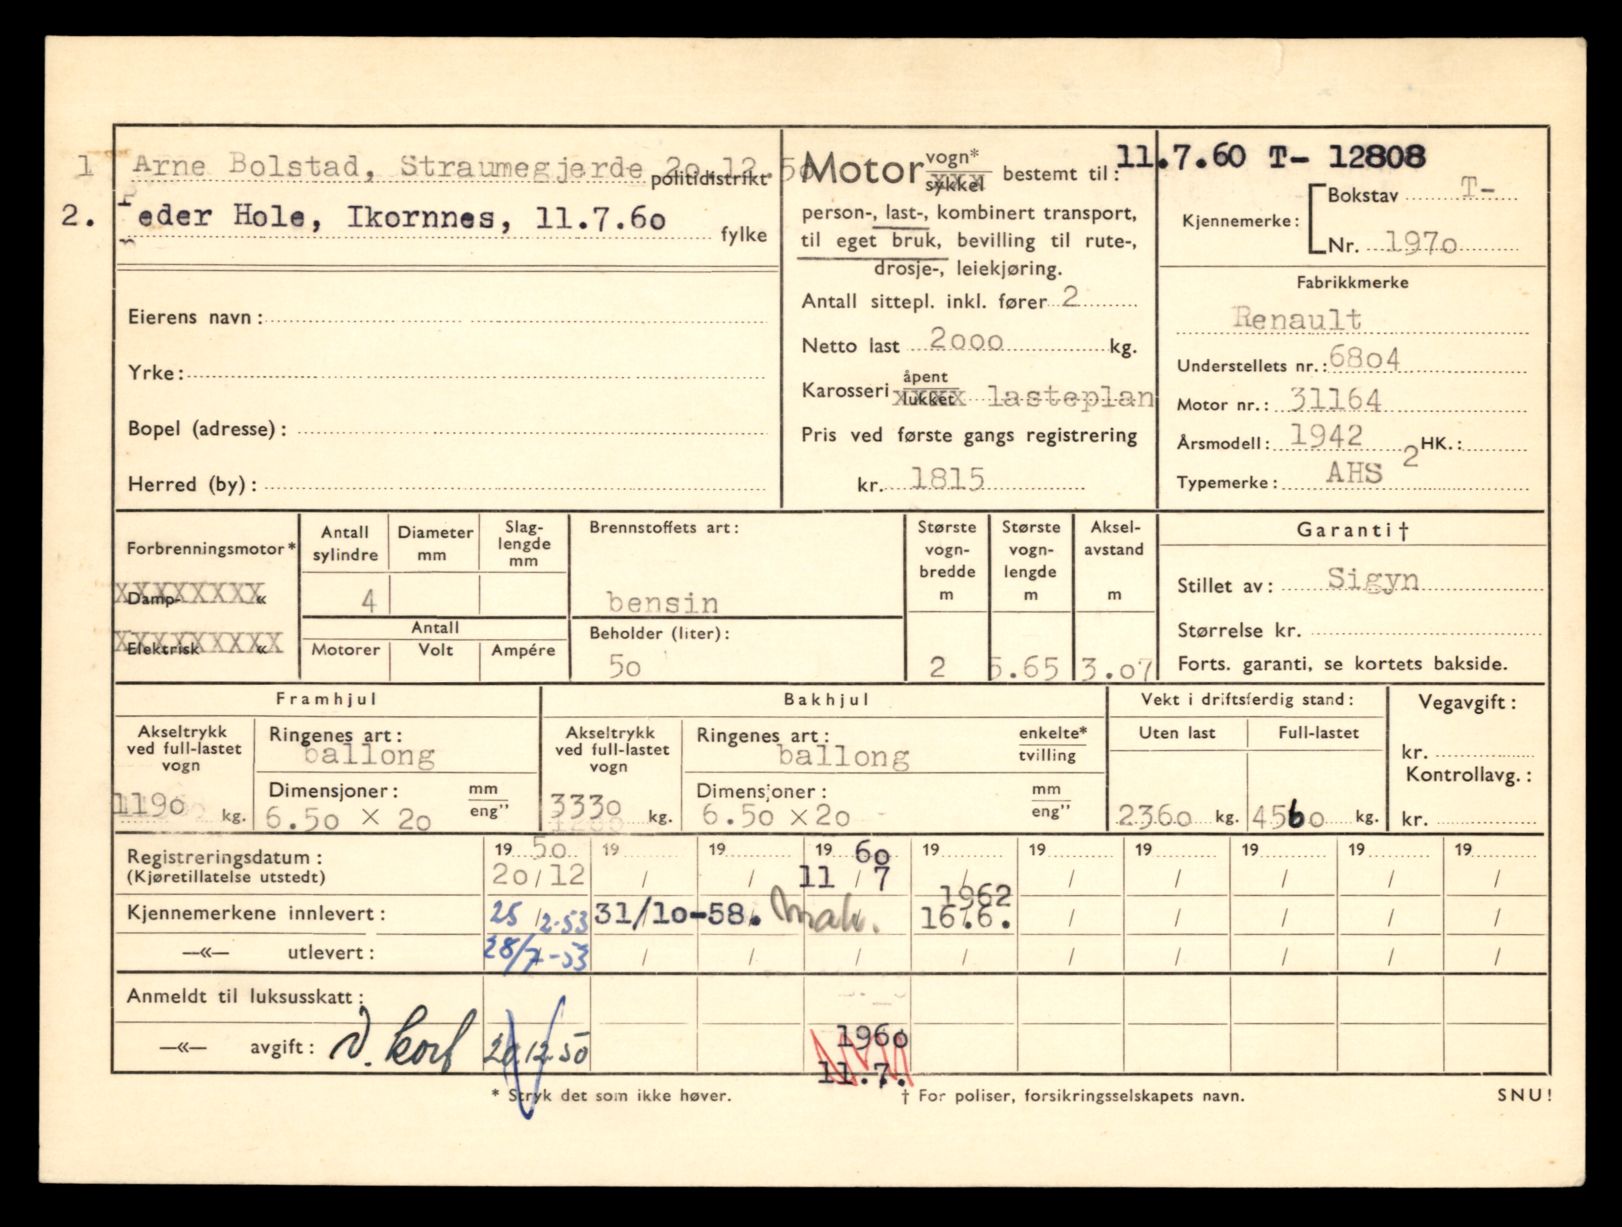 1 Arne Bolstad, Straumegjerde 20.12.50
politidistrikt
2. Peder Hole, Ikornnes, 11.7.60
fylke
Eierens navn:
Yrke:
Bopel (adresse):
Herred (by):
Motor vogn* sykkel bestemt til:
person-, last-, kombinert transport,
til eget bruk, bevilling til rute-,
drosje-, leiekjøring.
Antall sittepl. inkl. fører 2
Netto last 2000 kg.
Karosseri åpent lukket lasteplan
Pris ved første gangs registrering
kr. 1815
11.7.60 T- 12808
Kjennemerke: Bokstav T-
Nr. 1970
Fabrikkmerke
Renault
Understellets nr.: 6804
Motor nr.: 31164
Årsmodell: 1942 HK.:
Typemerke: AHS 2
Forbrenningsmotor*
Damp- «
Elektrisk «
Antall sylindre
Diameter mm
Slag-lengde mm
4
Antall
Motorer Volt Ampére
Brennstoffets art:
bensin
Beholder (liter):
50
Største vogn-bredde m
2
Største vogn-lengde m
5.65
Aksel-avstand m
3.07
Garanti†
Stillet av: Sigyn
Størrelse kr.
Forts. garanti, se kortets bakside.
Framhjul
Akseltrykk ved full-lastet vogn
1190 kg.
Ringenes art:
ballong
Dimensjoner: mm eng”
6.50 × 20
Bakhjul
Akseltrykk ved full-lastet vogn
3330 kg.
Ringenes art: enkelte* tvilling
ballong
Dimensjoner: mm eng”
6.50 × 20
Vekt i driftsferdig stand:
Uten last Full-lastet
2360 kg. 4560 kg.
Vegavgift:
kr.
Kontrollavg.:
kr.
Registreringsdatum: 19 50 19 19 19 60 19 19 19 19 19 19
(Kjøretillatelse utstedt) 20/12 / / 11 / 7 / / / / / /
1962
Kjennemerkene innlevert: 25/2-53 31/10-58. 16.6. / / / / /
—«— utlevert: 28/7-53 / / / / / / / / /
Anmeldt til luksusskatt:
—«— avgift: 20.12.50 1960
11.7.
* Stryk det som ikke høver.
† For poliser, forsikringsselskapets navn.
SNU!